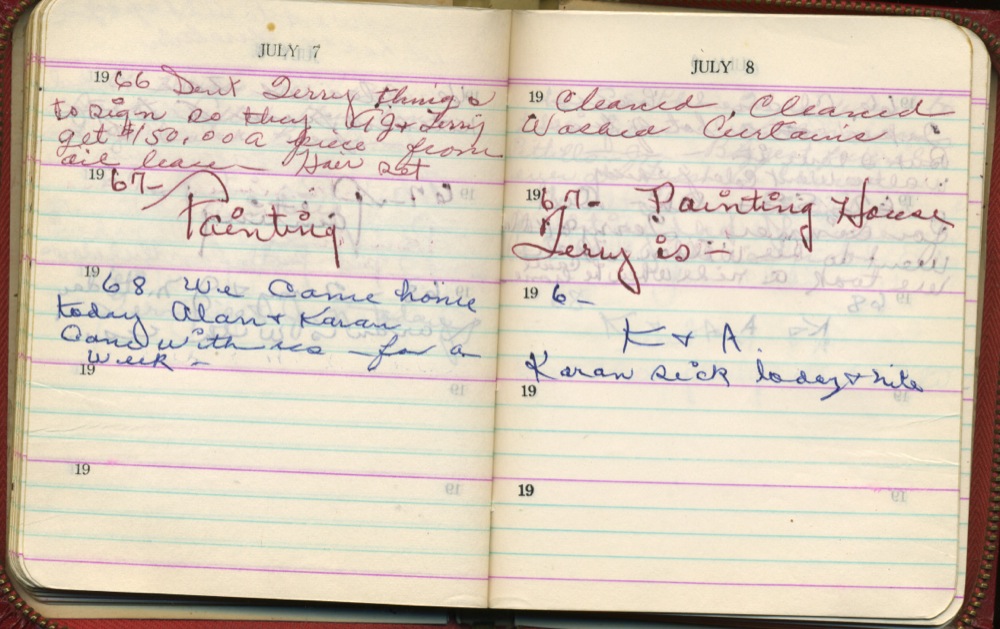 JULY 7
1966 Sent Terry things
to sign so they TJ + Terry
get $150.00 a piece from
oil lease - Hair set
1967-
Painting
1968 We Came home
today Alan + Karan
Came with us - for a
week -
19
19
JULY 8
19 Cleaned, Cleaned
Washed Curtains
1967- Painting House
Terry is -
19 6-
K + A.
Karan sick today + nite
19
19